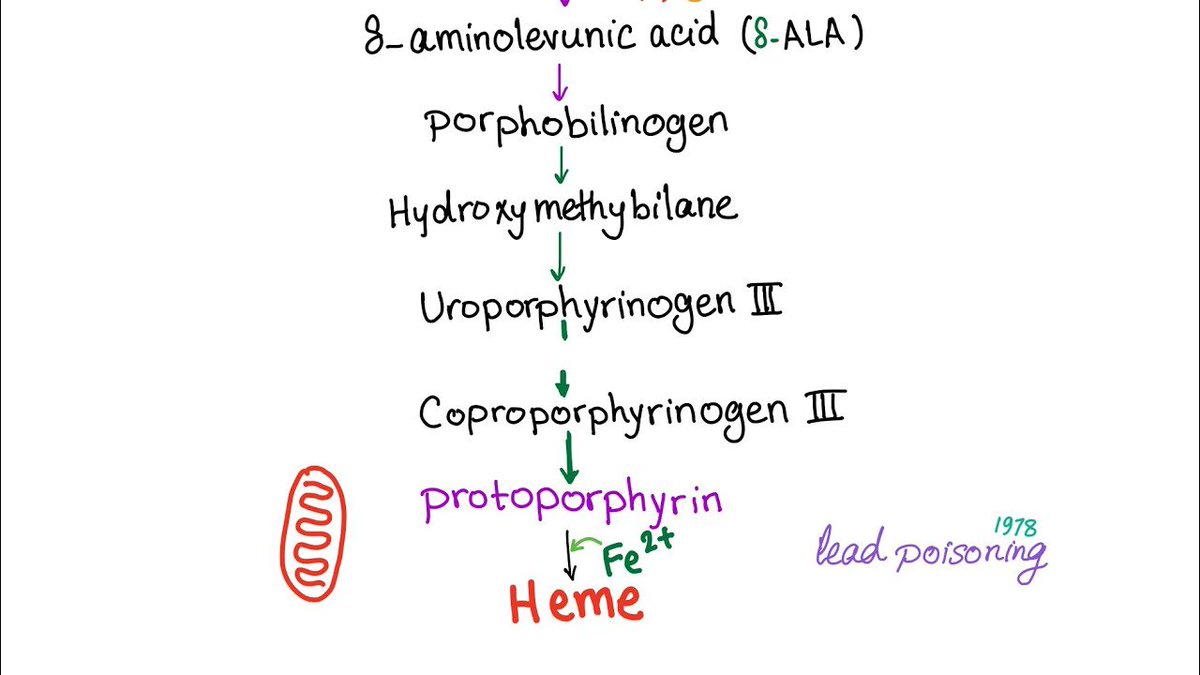 δ-aminolevunic acid (δ-ALA)
porphobilinogen
Hydroxymethybilane
Uroporphyrinogen III
Coproporphyrinogen III
protoporphyrin
Fe²⁺
1978
lead poisoning
Heme